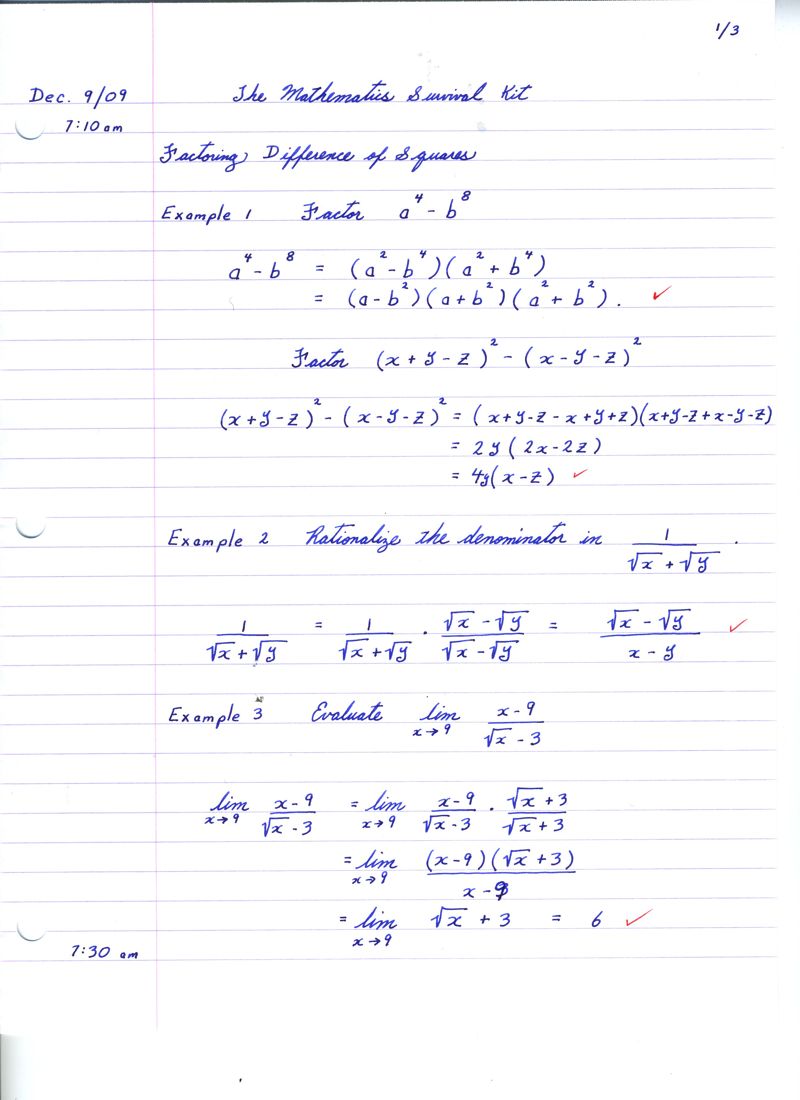 1/3
Dec. 9/09 The Mathematics Survival Kit
7:10 am
Factoring Difference of Squares
Example 1 Factor a⁴ - b⁸
a⁴ - b⁸ = (a² - b⁴)(a² + b⁴)
= (a - b²)(a + b²)(a² + b²). ✓
Factor (x + y - z)² - (x - y - z)²
(x + y - z)² - (x - y - z)² = (x+y-z-x+y+z)(x+y-z+x-y-z)
= 2y(2x-2z)
= 4y(x-z) ✓
Example 2 Rationalize the denominator in 1/(√x + √y).
1/(√x + √y) = 1/(√x + √y) · (√x - √y)/(√x - √y) = (√x - √y)/(x - y) ✓
Example 3 Evaluate lim x→9 (x-9)/(√x - 3)
lim x→9 (x-9)/(√x - 3) = lim x→9 (x-9)/(√x - 3) · (√x + 3)/(√x + 3)
= lim x→9 (x-9)(√x + 3)/(x-9)
= lim x→9 √x + 3 = 6 ✓
7:30 am